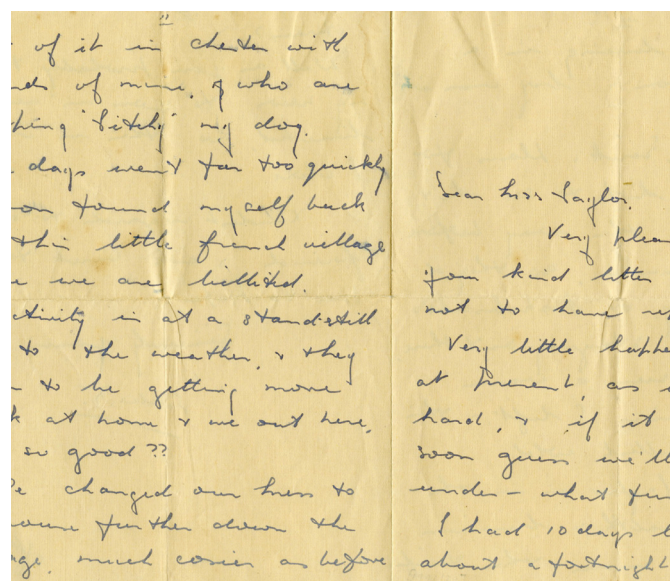 "
of it in Chester with
of mine, & who are
my dog.
days went far too quickly
found myself back
this little french village
we are billited.
at a standstill
to the weather, & they
to be getting more
at home & we out here,
so good??
changed our mess to
further down the
much cosier as before
Dear Miss Taylor.
Very
your kind letter
not to have
Very little
at present, as
hard, & if it
soon guess we'll
under - what
I had 10 days
about a fortnight